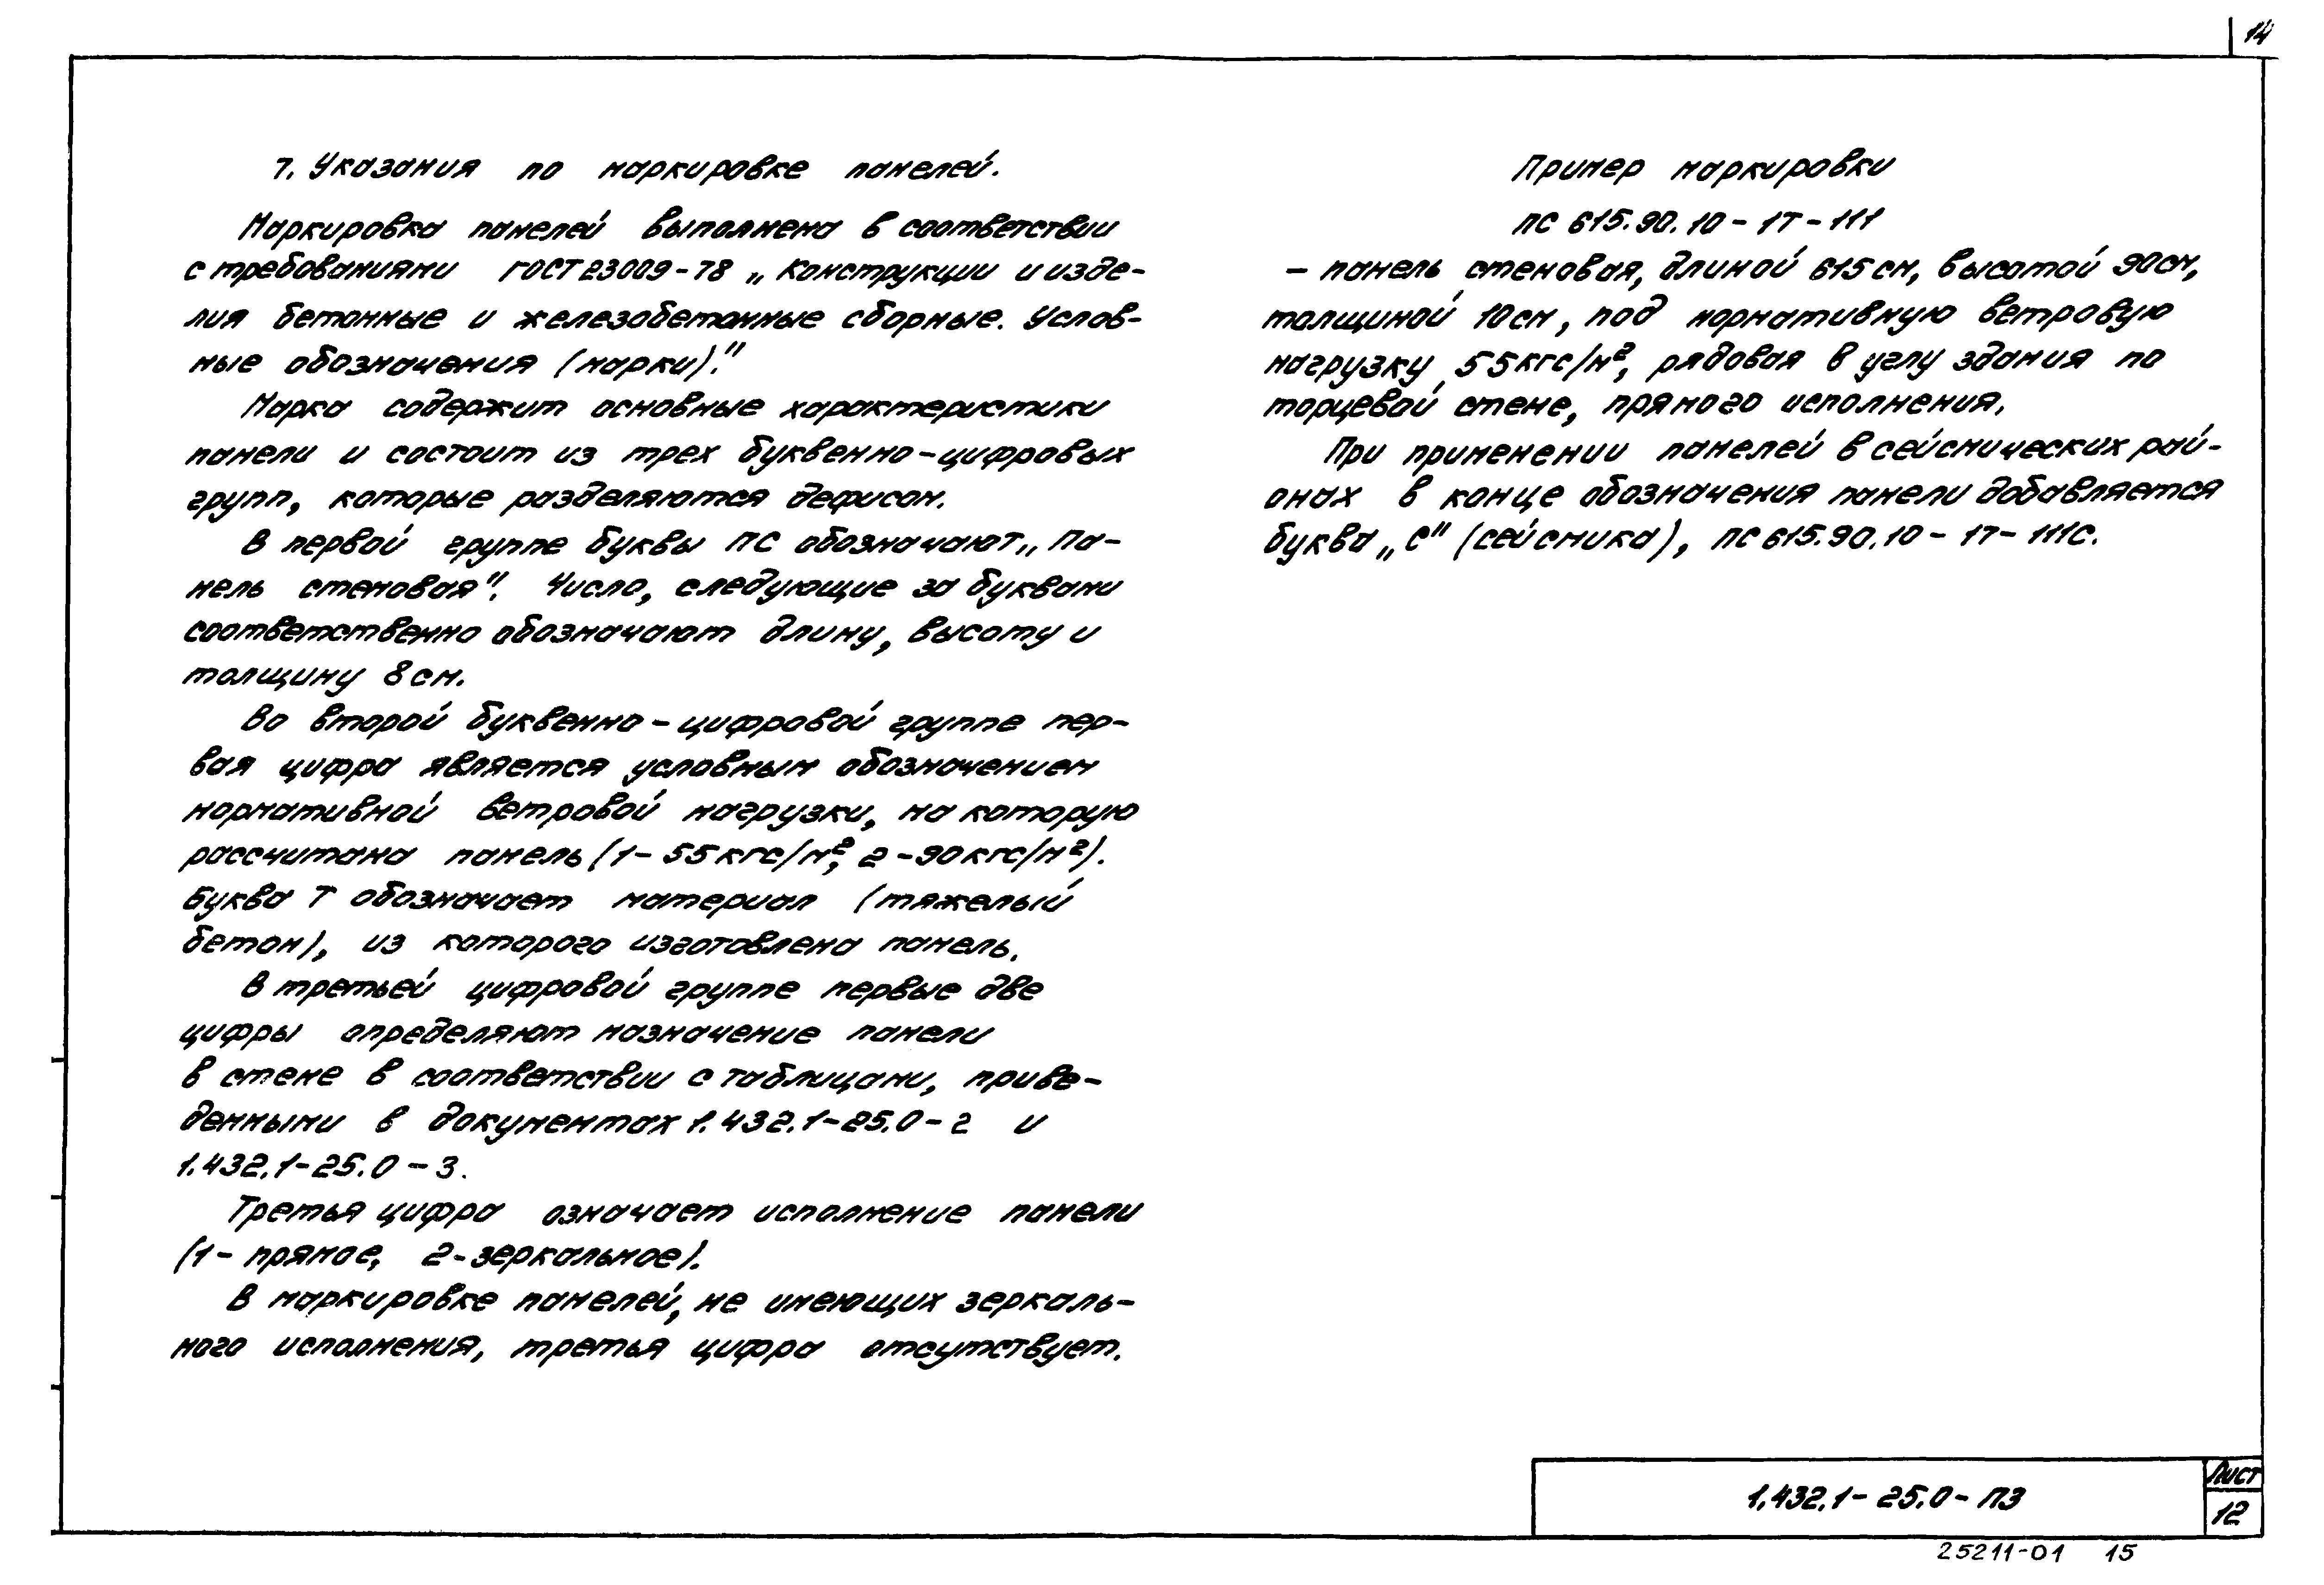 14
7. Указания по маркировке панелей.
Маркировка панелей выполнена в соответствии
с требованиями ГОСТ 23009-78 „Конструкции и изде-
лия бетонные и железобетонные сборные. Услов-
ные обозначения (марки)."
Марка содержит основные характеристики
панели и состоит из трех буквенно-цифровых
групп, которые разделяются дефисом.
В первой группе буквы ПС обозначают „Па-
нель стеновая". Число, следующие за буквами
соответственно обозначают длину, высоту и
толщину 8 см.
Во второй буквенно-цифровой группе пер-
вая цифра является условным обозначением
нормативной ветровой нагрузки, на которую
рассчитана панель (1-55 кгс/м², 2-90 кгс/м²).
Буква Т обозначает материал (тяжелый
бетон), из которого изготовлена панель.
В третьей цифровой группе первые две
цифры определяют назначение панели
в стене в соответствии с таблицами, приве-
денными в документах 1.432.1-25.0-2 и
1.432.1-25.0-3.
Третья цифра означает исполнение панели
(1- прямое, 2-зеркальное).
В маркировке панелей, не имеющих зеркаль-
ного исполнения, третья цифра отсутствует.
Пример маркировки
ПС 615.90.10-1Т-111
- панель стеновая, длиной 615 см, высотой 90 см,
толщиной 10 см, под нормативную ветровую
нагрузку 55 кгс/м², рядовая в углу здания по
торцевой стене, прямого исполнения.
При применении панелей в сейсмических рай-
онах в конце обозначения панели добавляется
буква „С" (сейсмика), ПС 615.90.10-1Т-111С.
1.432.1-25.0-ПЗ
Лист
12
25211-01 15